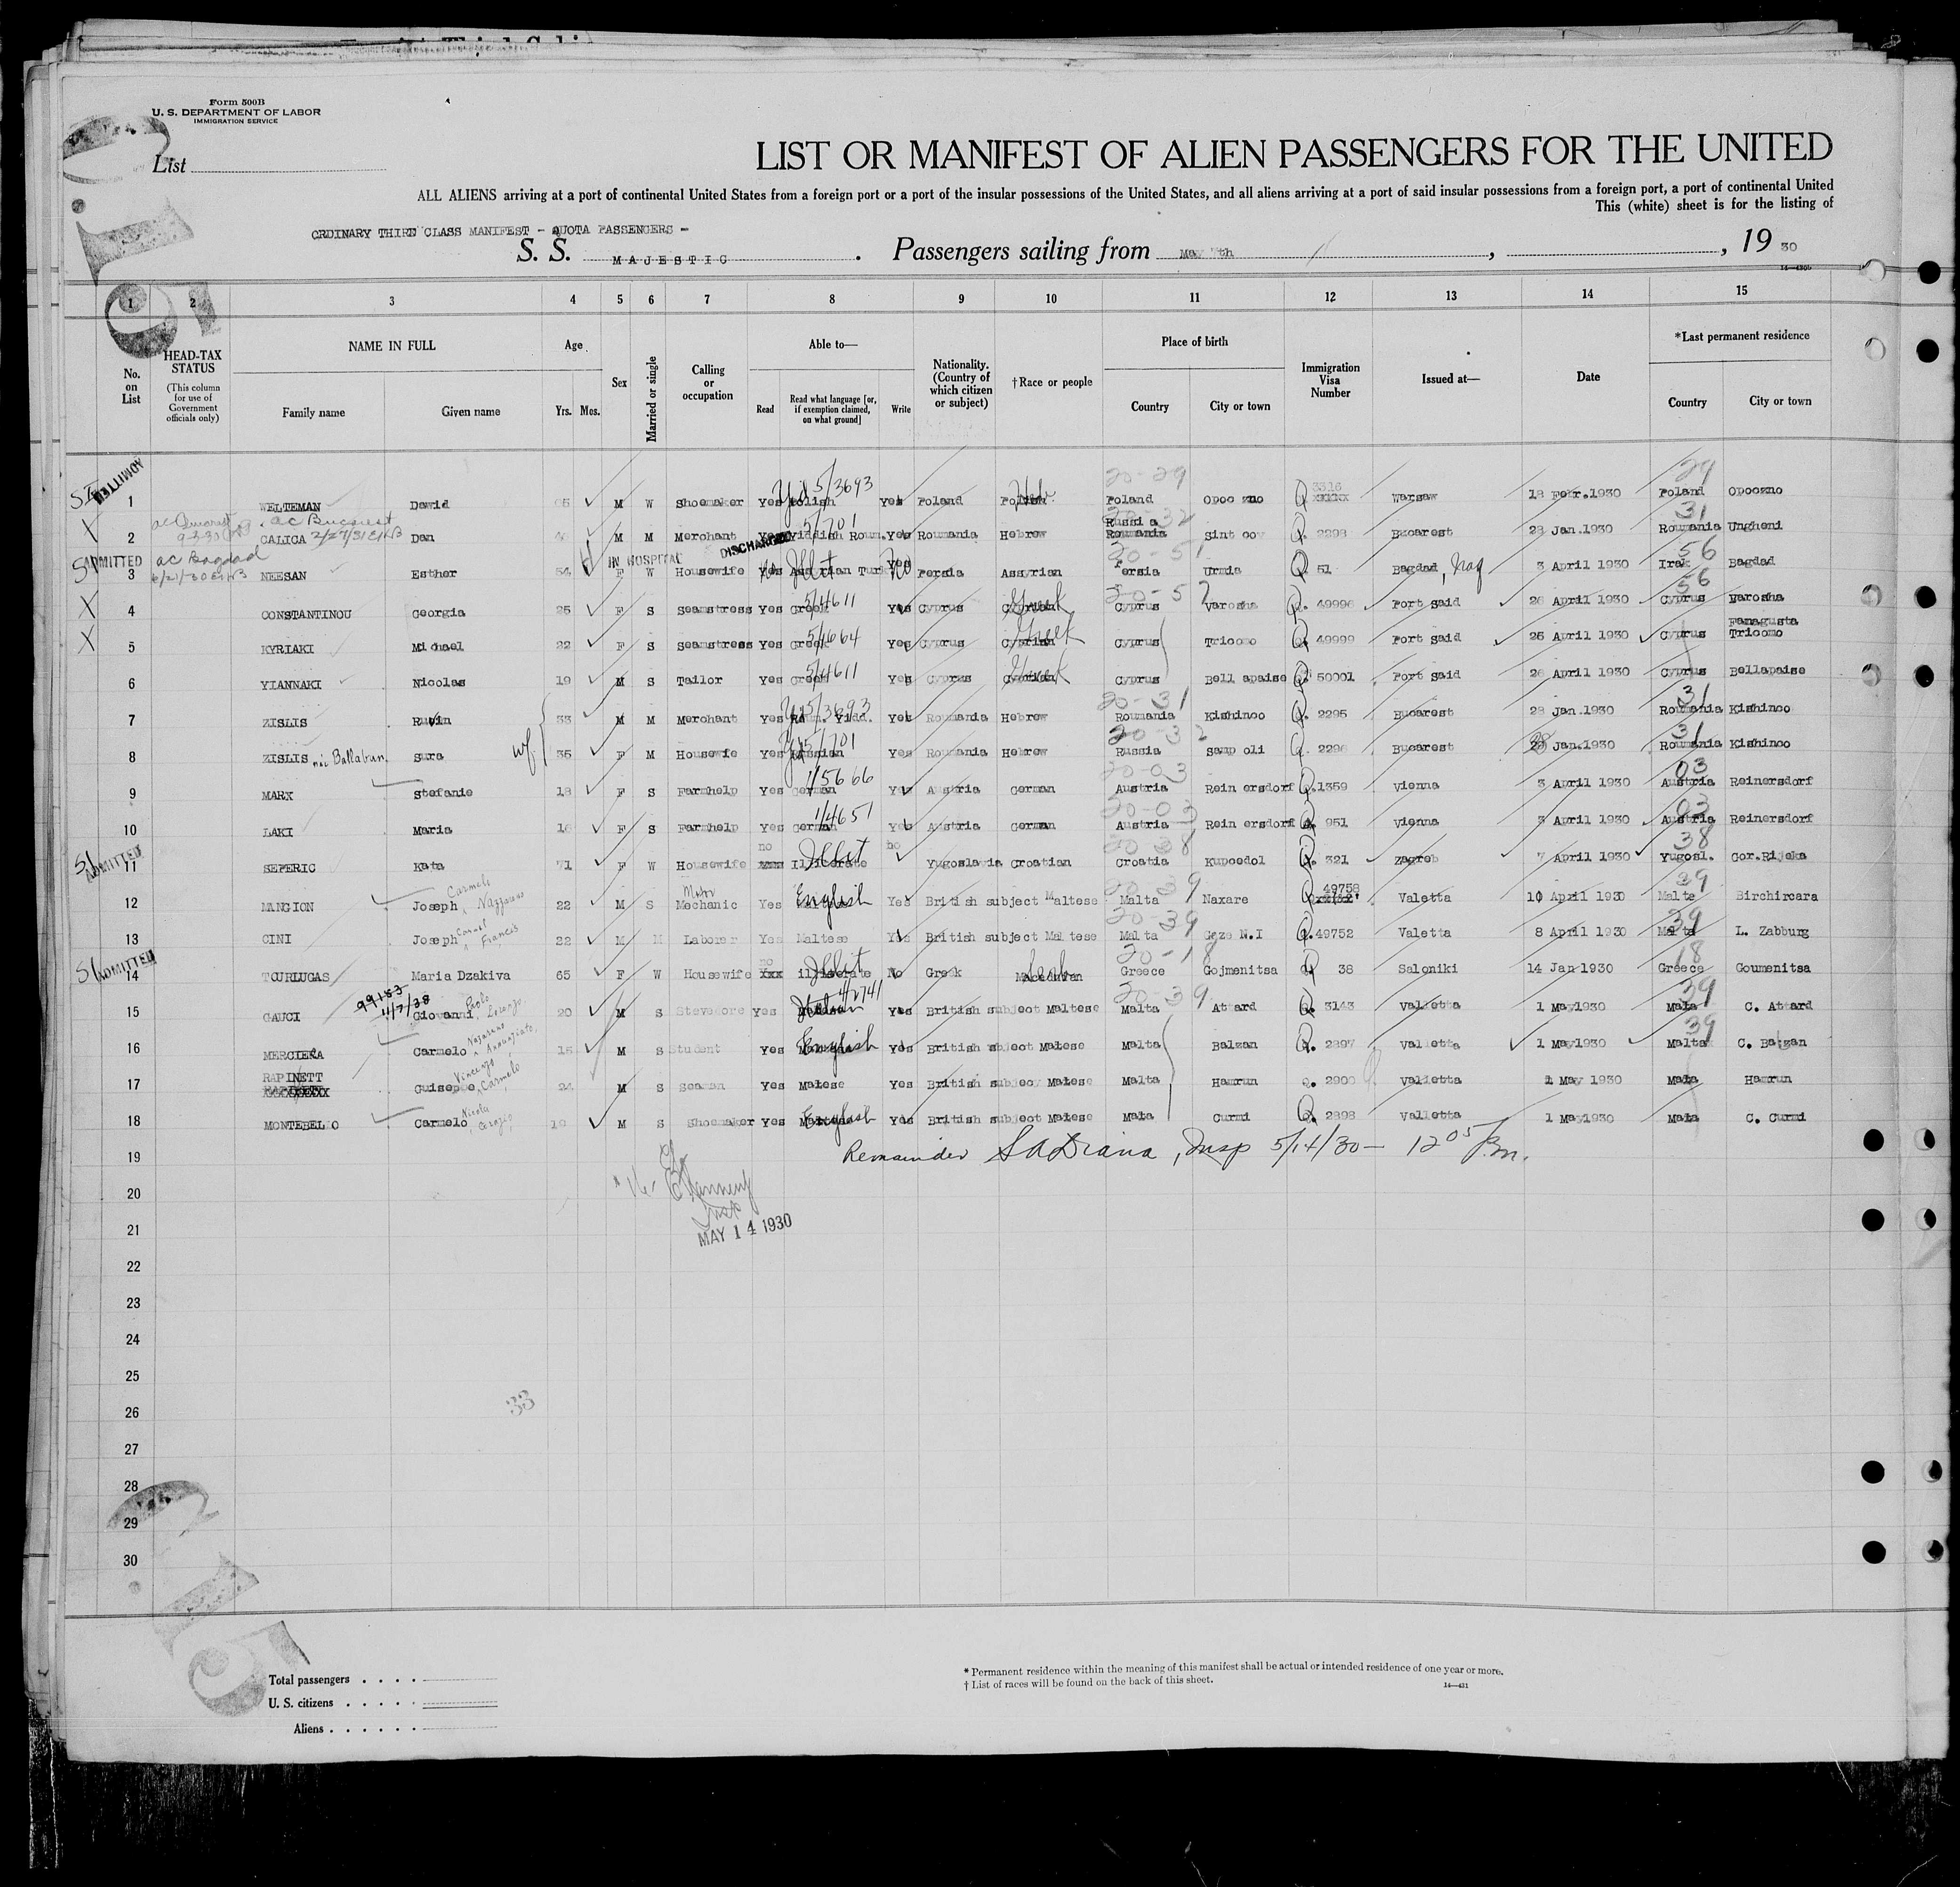 Form 500B
U. S. DEPARTMENT OF LABOR
IMMIGRATION SERVICE
List
LIST OR MANIFEST OF ALIEN PASSENGERS FOR THE UNITED
ALL ALIENS arriving at a port of continental United States from a foreign port or a port of the insular possessions of the United States, and all aliens arriving at a port of said insular possessions from a foreign port, a port of continental United
This (white) sheet is for the listing of
ORDINARY THIRD CLASS MANIFEST - QUOTA PASSENGERS -
S. S. MAJESTIC. Passengers sailing from May 7th, , 19 30
14—430b
1 2 3 4 5 6 7 8 9 10 11 12 13 14 15
No. on List
HEAD-TAX STATUS (This column for use of Government officials only)
NAME IN FULL
Family name Given name
Age Yrs. Mos.
Sex
Married or single
Calling or occupation
Able to— Read Read what language [or, if exemption claimed, on what ground] Write
Nationality. (Country of which citizen or subject)
†Race or people
Place of birth Country City or town
Immigration Visa Number
Issued at—
Date
*Last permanent residence Country City or town
SI ADMITTED 1 WELTEMAN Dawid 65 M W Shoemaker Yes Polish Yid 5/3693 Yes Poland Heb. Poland 20-29 Opoczno Q 3316 Warsaw 18 Febr.1930 Poland 29 Opoczno
X 2 CALICA ac Bucarest 2/27/31 Dan M M Merchant Yes Yiddish Roum. 5/701 Yes Roumania Hebrew Russia Roumania 20-32 Q. 2298 Bucarest 28 Jan.1930 Roumania 31 Ungheni
SI ADMITTED 3 ac Bagdad NEESAN Esther 54 F W IN HOSPITAL DISCHARGED Housewife Yes Persia Assyrian Persia 20-51 Urmia Q 51 Bagdad, Iraq 3 April 1930 Irak 56 Bagdad
X 4 CONSTANTINOU Georgia 25 F S Seamstress Yes Greek 5/4611 Yes Cyprus Greek Cyprus 20-57 Varosha Q. 49996 Port Said 26 April 1930 Cyprus 56 Varosha Famagusta
X 5 KYRIAKI Michael 22 F S Seamstress Yes Greek 5/4664 Yes Cyprus Greek Cyprus Tricomo Q 49999 Port Said 26 April 1930 Cyprus Tricomo
6 YIANNAKI Nicolas 19 M S Tailor Yes Greek 5/4611 Yes Cyprus Greek Cyprus Bellapaise Q 50001 Port Said 26 April 1930 Cyprus Bellapaise
7 ZISLIS Ruvin 33 M M Merchant Yes Roum. Yidd. 5/3693 Yes Roumania Hebrew Roumania 20-31 Kishinoo Q. 2295 Bucarest 28 Jan.1930 Roumania 31 Kishinoo
8 ZISLIS née Ballaban Sura wf 35 F M Housewife Yes Russian 5/701 Yes Roumania Hebrew Russia 20-32 Q. 2296 Bucarest 28 Jan.1930 Roumania 31 Kishinoo
9 MARX Stefanie 18 F S Farmhelp Yes German 1/5666 Yes Austria German Austria 20-03 Reinersdorf Q.1359 Vienna 3 April 1930 Austria 03 Reinersdorf
10 LAKI Maria 16 F S Farmhelp Yes German 1/4651 Yes Austria German Austria 20-03 Reinersdorf Q. 951 Vienna 3 April 1930 Austria 03 Reinersdorf
SI ADMITTED 11 SEPERIC Kata 71 F W Housewife no Illiterate no Yugoslavia Croatian Croatia 20 38 Kupcedol Q. 321 Zagreb 7 April 1930 Yugosl. 38 Gor.Rijeka
12 MANGION Joseph Carmelo Nazzareno 22 M S Motor Mechanic Yes English Yes British subject Maltese Malta 20-39 Naxare Q 49758 Valetta 10 April 1930 Malta 39 Birchircara
13 CINI Joseph Francis 22 M M Laborer Yes Maltese Yes British subject Maltese Malta 20-39 Gozo N.I Q.49752 Valetta 8 April 1930 Malta 39 L. Zabburg
SI ADMITTED 14 TOURLUGAS Maria Dzakiva 65 F W Housewife no illiterate No Greek Greece 20-18 Gojmenitsa Q 38 Saloniki 14 Jan 1930 Greece 18 Goumenitsa
15 GAUCI 99183 4/7/38 Giovanni Paolo Lorenzo 20 M S Stevedore Yes 4/2741 Yes British subject Maltese Malta 20-39 Attard Q. 3143 Valletta 1 May 1930 Malta 39 C. Attard
16 MERCIEKA Carmelo Nazareno Annunziato 15 M S Student Yes English Yes British subject Maltese Malta Balzan Q. 2897 Valletta 1 May 1930 Malta 39 C. Balzan
17 RAPINETT Guiseppe Vincenzo Carmelo 24 M S Seaman Yes Maltese Yes British subject Maltese Malta Hamrun Q. 2900 Valletta 1 May 1930 Malta Hamrun
18 MONTEBELLO Carmelo Nicola 19 M S Shoemaker Yes English Yes British subject Maltese Malta Curmi Q. 2898 Valletta 1 May 1930 Malta C. Curmi
19 Remainder S A Diana, Insp 5/14/30 — 12 05 P.m.
20
21 MAY 14 1930
22
23
24
25
26 33
27
28
29
30
Total passengers
U. S. citizens
Aliens
* Permanent residence within the meaning of this manifest shall be actual or intended residence of one year or more.
† List of races will be found on the back of this sheet.
14—431